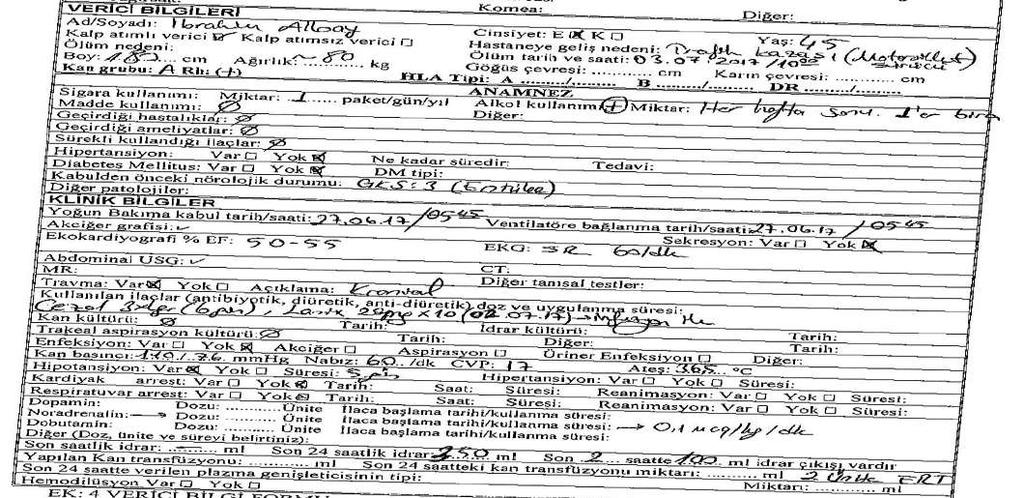 Kornea: Diğer:
VERİCİ BİLGİLERİ
Ad/Soyadı: İbrahim Albay Cinsiyet: E ☒ K ☐ Yaş: 45
Kalp atımlı verici ☑ Kalp atımsız verici ☐ Hastaneye geliş nedeni: Trafik kazası (Motorsiklet sürücü)
Ölüm nedeni: Ölüm tarih ve saati: 03.07.2017/
Boy: cm Ağırlık: ~80 kg Göğüs çevresi: ............ cm Karın çevresi: ............ cm
Kan grubu: A Rh: (+) HLA Tipi: A ........./......... B ........./......... DR ........./.........
ANAMNEZ
Sigara kullanımı: Miktar: 1 ...... paket/gün/yıl Alkol kullanımı: + Miktar: Her hafta sonu. 1'er bira
Madde kullanımı: Ø Diğer:
Geçirdiği hastalıklar: Ø
Geçirdiği ameliyatlar: Ø
Sürekli kullandığı ilaçlar: Ø
Hipertansiyon: Var ☐ Yok ☒ Ne kadar süredir: Tedavi:
Diabetes Mellitus: Var ☐ Yok ☒ DM tipi:
Kabulden önceki nörolojik durumu: GKS: 3 (Entübe)
Diğer patolojiler:
KLİNİK BİLGİLER
Yoğun Bakıma kabul tarih/saati: 27.06.17 /0545 Ventilatöre bağlanma tarih/saati: 27.06.17 / 0545
Akciğer grafisi: ✓ Sekresyon: Var ☐ Yok ☒
Ekokardiyografi % EF: 50-55 EKG: SR 60/dk
Abdominal USG: ✓
MR: CT:
Travma: Var ☒ Yok ☐ Açıklama: Kranial Diğer tanısal testler:
Kullanılan ilaçlar (antibiyotik, diüretik, anti-diüretik) doz ve uygulama süresi:
(6 gün), Lasix x10 (02.07.17)
Kan kültürü: Ø Tarih: İdrar kültürü: Tarih:
Trakeal aspirasyon kültürü: Ø Tarih: Diğer: Tarih:
Enfeksiyon: Var ☐ Yok ☒ Akciğer ☐ Aspirasyon ☐ Üriner Enfeksiyon ☐ Diğer:
Kan basıncı: /76 mmHg Nabız: 60 /dk CVP: 17 Ateş: 365 °C
Hipotansiyon: Var ☒ Yok ☐ Süresi: 5 Hipertansiyon: Var ☐ Yok ☐ Süresi:
Kardiyak arrest: Var ☐ Yok ☒ Tarih: Saat: Süresi: Reanimasyon: Var ☐ Yok ☐ Süresi:
Respiratuvar arrest: Var ☐ Yok ☒ Tarih: Saat: Süresi: Reanimasyon: Var ☐ Yok ☐ Süresi:
Dopamin: Dozu: ............ Ünite İlaca başlama tarihi/kullanma süresi:
Noradrenalin: → Dozu: ............ Ünite İlaca başlama tarihi/kullanma süresi: → 0,1 mcg/kg/dk
Dobutamin: Dozu: ............ Ünite İlaca başlama tarihi/kullanma süresi:
Diğer (Doz, ünite ve süreyi belirtiniz):
Son saatlik idrar: ......... ml Son 24 saatlik idrar: ml Son 2 saatte 100 ml idrar çıkışı vardır
Yapılan Kan transfüzyonu: ............ ml Son 24 saatteki kan transfüzyonu miktarı: ........ ml 2 Ünite ERT
Son 24 saatte verilen plazma genişleticisinin tipi: Miktarı: ........ ml
Hemodilüsyon Var ☐ Yok ☐
EK: 4 VERİCİ BİLGİ FORMU